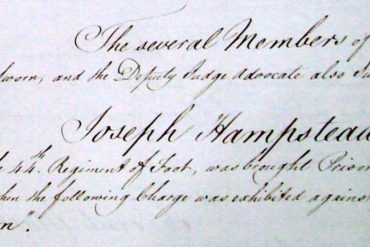 The several Members of
Sworn, and the Deputy Judge Advocate also
Joseph Hampstead
44th. Regiment of Foot, was brought
the following Charge was exhibited against